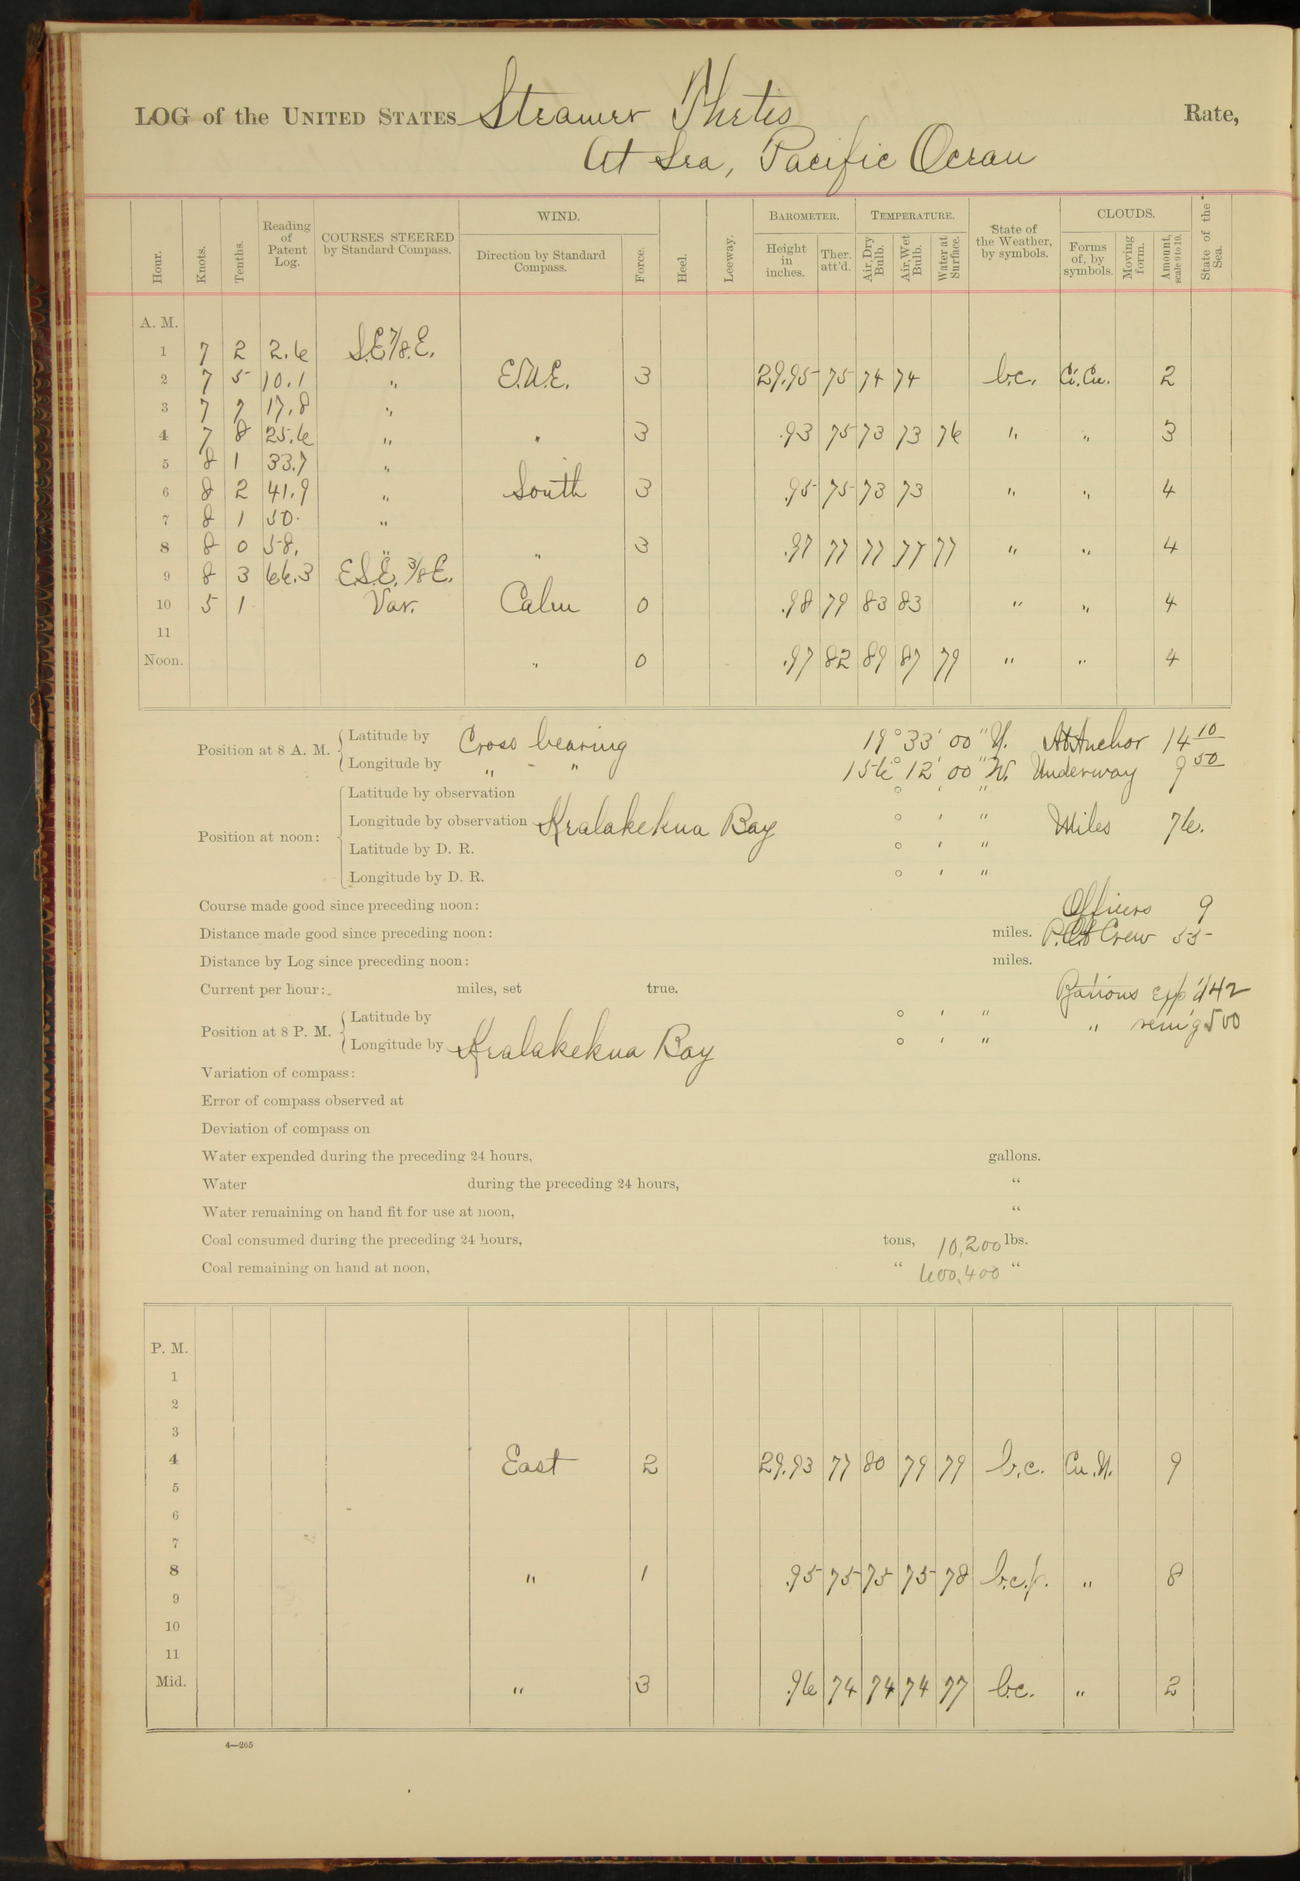 LOG of the UNITED STATES Steamer Thetis Rate,
At Sea, Pacific Ocean
Hour. Knots. Tenths. Reading of Patent Log. COURSES STEERED by Standard Compass. WIND. Direction by Standard Compass. Force. Heel. Leeway. BAROMETER. Height in inches. Ther. att'd. TEMPERATURE. Air, Dry Bulb. Air, Wet Bulb. Water at Surface. State of the Weather, by symbols. CLOUDS. Forms of, by symbols. Moving form. Amount, scale 0 to 10. State of the Sea.
A. M.
1 7 2 2.6 S.E.7/8.E.
2 7 5 10.1 " E.N.E. 3 29.95 75 74 74 b.c. Ci.Cu. 2
3 7 7 17.8 "
4 7 8 25.6 " " 3 .93 75 73 73 76 " " 3
5 8 1 33.7 "
6 8 2 41.9 " South 3 .95 75 73 73 " " 4
7 8 1 50. "
8 8 0 58. " " 3 .97 77 77 77 77 " " 4
9 8 3 66.3 E.S.E. 3/8 E.
10 5 1 Var. Calm 0 .98 79 83 83 " " 4
11
Noon. " 0 .97 82 89 87 79 " " 4
Position at 8 A. M. Latitude by Cross bearing 19° 33' 00" N. At Anchor 14 10
Longitude by " - " 156° 12' 00" W. Underway 9 50
Position at noon: Latitude by observation ° ' "
Longitude by observation Kealakekua Bay ° ' " Miles 76.
Latitude by D. R. ° ' "
Longitude by D. R. ° ' "
Course made good since preceding noon: Officers 9
Distance made good since preceding noon: miles. Crew 55
Distance by Log since preceding noon: miles.
Current per hour: miles, set true. Rations exp'd 42
Position at 8 P. M. Latitude by ° ' " " rem'g 500
Longitude by Kealakekua Bay ° ' "
Variation of compass:
Error of compass observed at
Deviation of compass on
Water expended during the preceding 24 hours, gallons.
Water during the preceding 24 hours, "
Water remaining on hand fit for use at noon, "
Coal consumed during the preceding 24 hours, tons, 10,200 lbs.
Coal remaining on hand at noon, " 600,400 "
P. M.
1
2
3
4 East 2 29.93 77 80 79 79 b.c. Cu.N. 9
5
6
7
8 " 1 .95 75 75 75 78 b.c.p. " 8
9
10
11
Mid. " 3 .96 74 74 74 77 b.c. " 2
4—265